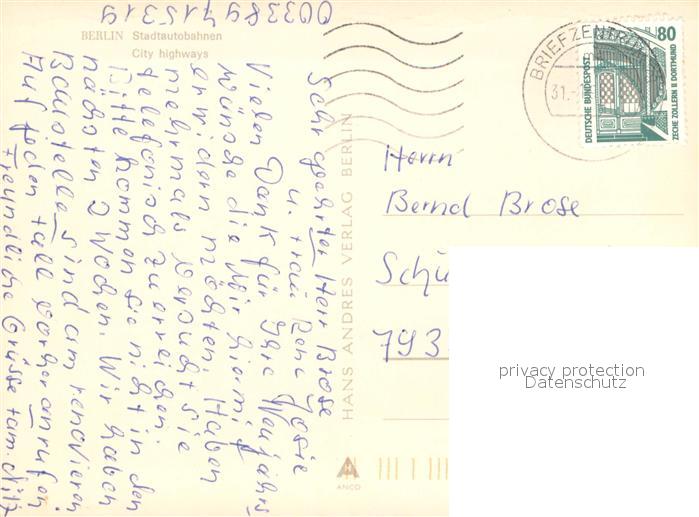 BERLIN Stadtautobahnen
City highways
003389 715319
Sehr geehrter Herr Brose
u. Frau Rena Josie
Vielen Dank für Ihre Neujahrs
wünsche die Wir hiermit
erwidern möchten. Haben
mehrmals versucht sie
telefonisch zu erreichen.
Bitte kommen Sie nicht in den
nächsten 2 Wochen. Wir haben
Baustelle sind am renovieren
Auf jeden Fall vorher anrufen
Freundliche Grüsse Fam. Nitz
HANS ANDRES VERLAG BERLIN
ANCO
BRIEFZENTRUM
31.
80
DEUTSCHE BUNDESPOST
ZECHE ZOLLERN II DORTMUND
Herrn
Bernd Brose
Schü
793
privacy protection
Datenschutz